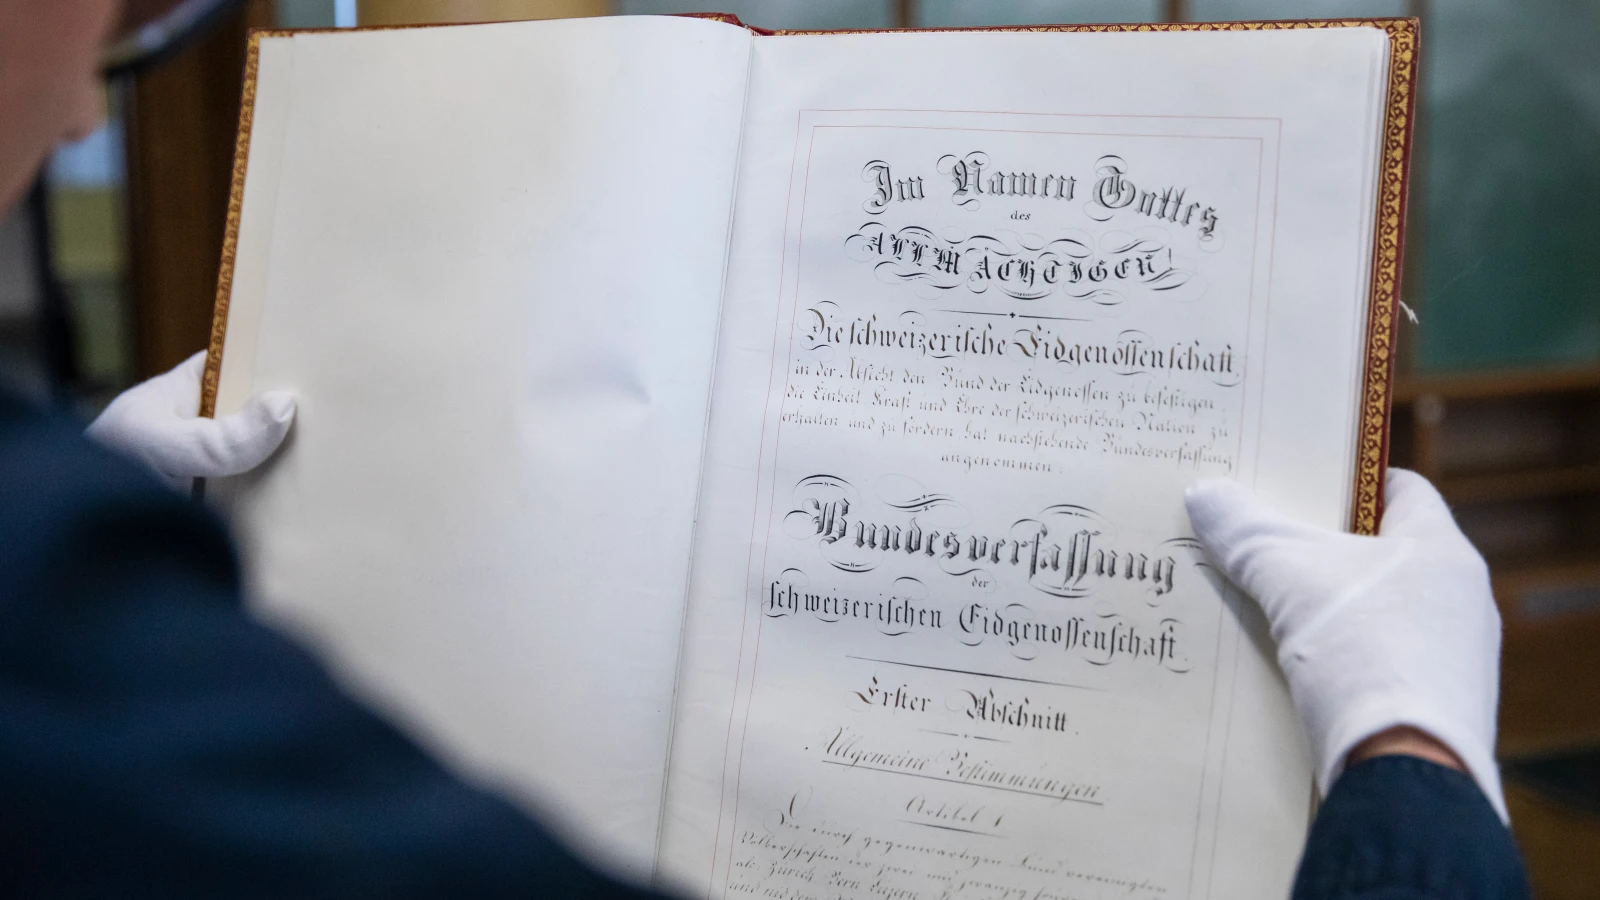 Im Namen Gottes
des
ALLMÄCHTIGEN!
Die schweizerische Eidgenossenschaft,
in der Absicht den Bund der Eidgenossen zu befestigen,
die Einheit Kraft und Ehre der schweizerischen Nation zu
erhalten und zu fördern hat nachstehende Bundesverfassung
angenommen:
Bundesverfassung
der
schweizerischen Eidgenossenschaft.
Erster Abschnitt.
Allgemeine Bestimmungen.
Artikel 1
Die durch gegenwärtigen Bund vereinigten
Völkerschaften der zwei und zwanzig
als Zürich Bern Luzern
und nid dem